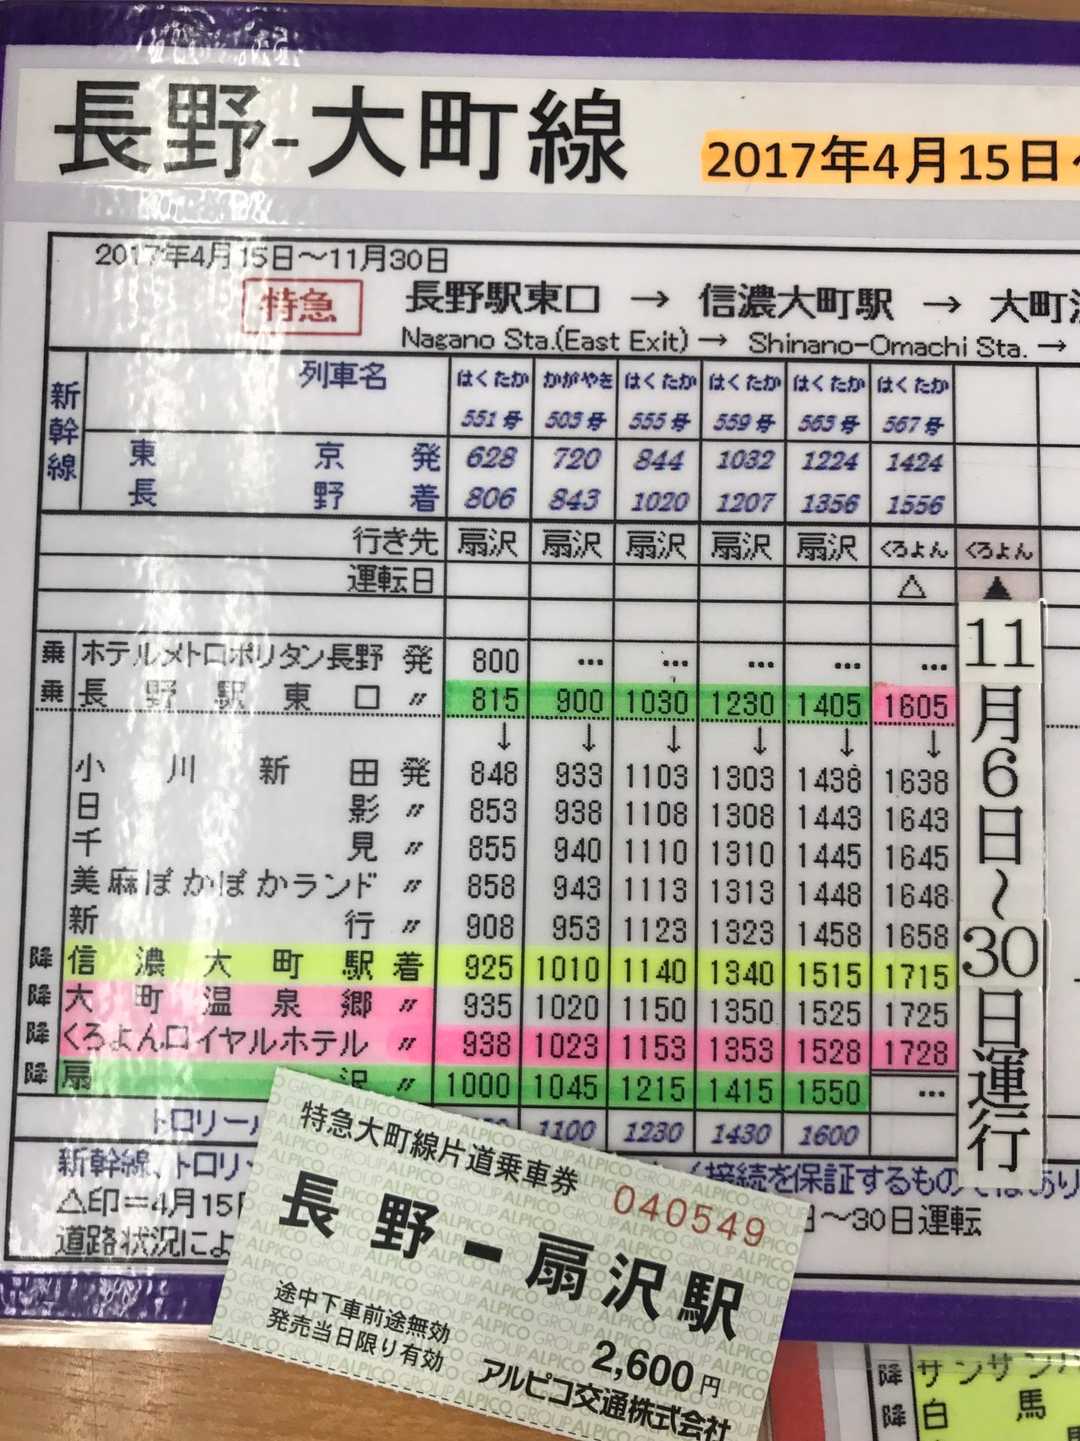 長野-大町線 2017年4月15日
2017年4月15日～11月30日
特急 長野駅東口 → 信濃大町駅 → 大町
Nagano Sta.(East Exit) → Shinano-Omachi Sta. →
新幹線 列車名 はくたか かがやき はくたか はくたか はくたか はくたか
551号 503号 555号 559号 563号 567号
東京発 628 720 844 1032 1224 1424
長野着 806 843 1020 1207 1356 1556
行き先 扇沢 扇沢 扇沢 扇沢 扇沢 くろよん くろよん
運転日 △ ▲
乗 ホテルメトロポリタン長野 発 800 … … … … …
乗 長野駅東口 〃 815 900 1030 1230 1405 1605
↓ ↓ ↓ ↓ ↓ ↓
小川新田 発 848 933 1103 1303 1438 1638
日影 〃 853 938 1108 1308 1443 1643
千見 〃 855 940 1110 1310 1445 1645
美麻ぽかぽかランド 〃 858 943 1113 1313 1448 1648
新行 〃 908 953 1123 1323 1458 1658
降 信濃大町駅 着 925 1010 1140 1340 1515 1715
降 大町温泉郷 〃 935 1020 1150 1350 1525 1725
降 くろよんロイヤルホテル 〃 938 1023 1153 1353 1528 1728
降 扇沢 〃 1000 1045 1215 1415 1550 …
11月6日～30日運行
トロリー 1100 1230 1430 1600
新幹線、トロリ
接続を保証するもの
△印=4月15日
日～30日運転
道路状況によ
特急大町線片道乗車券
040549
長野ー扇沢駅
途中下車前途無効
発売当日限り有効
2,600円
アルピコ交通株式会社
ALPICO GROUP
降 サンサン
降 白馬